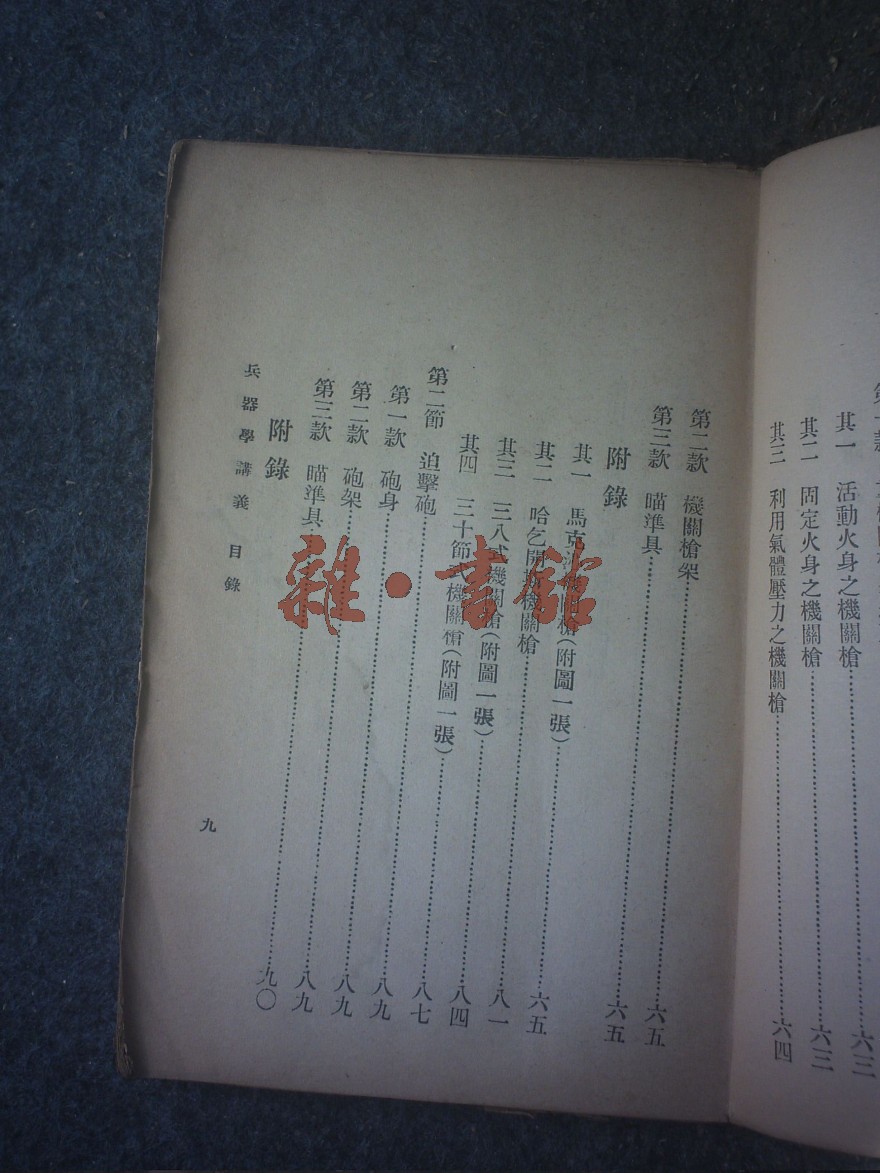 其一　活動火身之機關槍……六三
其二　固定火身之機關槍……六三
其三　利用氣體壓力之機關槍……六四
第二款　機關槍架……六五
第三款　瞄準具……六五
附錄
其一　馬克沁機關槍(附圖一張)……六五
其二　哈乞開斯機關槍……八一
其三　三八式機關槍(附圖一張)……八四
其四　三十節式機關槍(附圖一張)……八七
第二節　迫擊砲……八九
第一款　砲身……八九
第二款　砲架……八九
第三款　瞄準具……九〇
附錄
兵器學講義　目錄
九
雜·書館